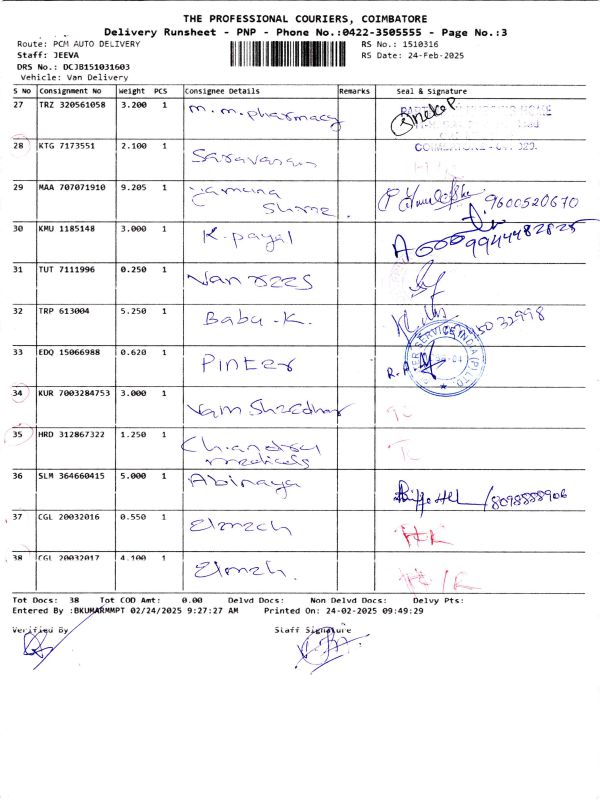 THE PROFESSIONAL COURIERS, COIMBATORE
Delivery Runsheet - PNP - Phone No.:0422-3505555 - Page No.:3
Route: PCM AUTO DELIVERY RS No.: 1510316
Staff: JEEVA RS Date: 24-Feb-2025
DRS No.: DCJB151031603
Vehicle: Van Delivery
S No Consignment No Weight PCS Consignee Details Remarks Seal & Signature
27 TRZ 320561058 3.200 1 m.m.pharmacy
28 KTG 7173551 2.100 1 Saravanan COIMBATORE
29 MAA 707071910 9.205 1 9600520670
30 KMU 1185148 3.000 1 K.payal 9944482825
31 TUT 7111996 0.250 1
32 TRP 613004 5.250 1 Babu.K.
33 EDQ 15066988 0.620 1 Pinter
34 KUR 7003284753 3.000 1
35 HRD 312867322 1.250 1 medicals
36 SLM 364660415 5.000 1 Abinaya 8098558906
37 CGL 20032016 0.550 1
38 CGL 20032017 4.100 1
Tot Docs: 38 Tot COD Amt: 0.00 Delvd Docs: Non Delvd Docs: Delvy Pts:
Entered By :BKUMARMMPT 02/24/2025 9:27:27 AM Printed On: 24-02-2025 09:49:29
Verified By Staff Signature